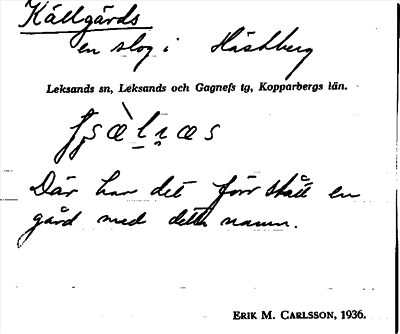 Källgårds
en slog i Hästberg
Leksands sn, Leksands och Gagnefs tg, Kopparbergs län.
Där har det förr stått en
gård med detta namn.
ERIK M. CARLSSON, 1936.